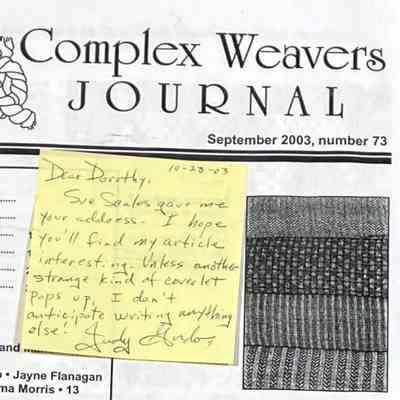 Complex Weavers
JOURNAL
September 2003, number 73
10-23-03
Dear Dorothy,
Sue Scales gave me
your address. I hope
you'll find my article
interesting. Unless another
strange kind of coverlet
pops up, I don't
anticipate writing anything
else! Judy
and
• Jayne Flanagan
ma Morris • 13